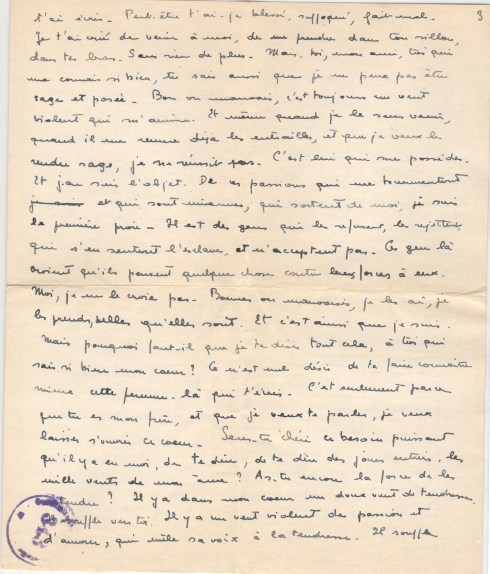 3
t'ai écris. Peut-être t'ai-je blessé, suffoqué, fait mal.
Je t'ai crié de venir à moi, de me prendre dans ton sillon,
dans tes bras. Sans rien de plus. Mais, toi, mon ami, toi qui
me connais si bien, tu sais aussi que je ne peux pas être
sage et posée. Bon ou mauvais, c'est toujours un vent
violent qui m'anime. Et même quand je le sens venir,
quand il me remue déjà les entrailles, et que je veux le
rendre sage, je ne réussit pas. C'est lui qui me possède.
Et j'en suis l'objet. De ces passions qui me tourmentent
et qui sont miennes, qui sortent de moi, je suis
la première proie. Il est des gens qui les refusent, les rejettent
qui s'en sentent l'esclave, et n'acceptent pas. Ces gens là
croient qu'ils peuvent quelque chose contre leurs forces à eux.
Moi, je ne le crois pas. Bonnes ou mauvaises, je les ai, je
les prends, telles qu'elles sont. Et c'est ainsi que je suis.
Mais pourquoi faut-il que je te dise tout cela, à toi qui
sais si bien mon coeur? Ce n'est nul désir de te faire connaître
mieux cette femme-là qui t'écris. C'est seulement parce
que tu es mon frère, et que je veux te parler, je veux
laisser s'ouvrir ce coeur. Sens-tu chéri ce besoin puissant
qu'il y a en moi, de te dire, de te dire des jours entiers, les
mille vents de mon âme? As-tu encore la force de les
entendre? Il y a dans mon coeur un doux vent de tendresse.
Il souffle vers toi. Il y a un vent violent de passion et
d'amour, qui mêle sa voix à la tendresse. Il souffle